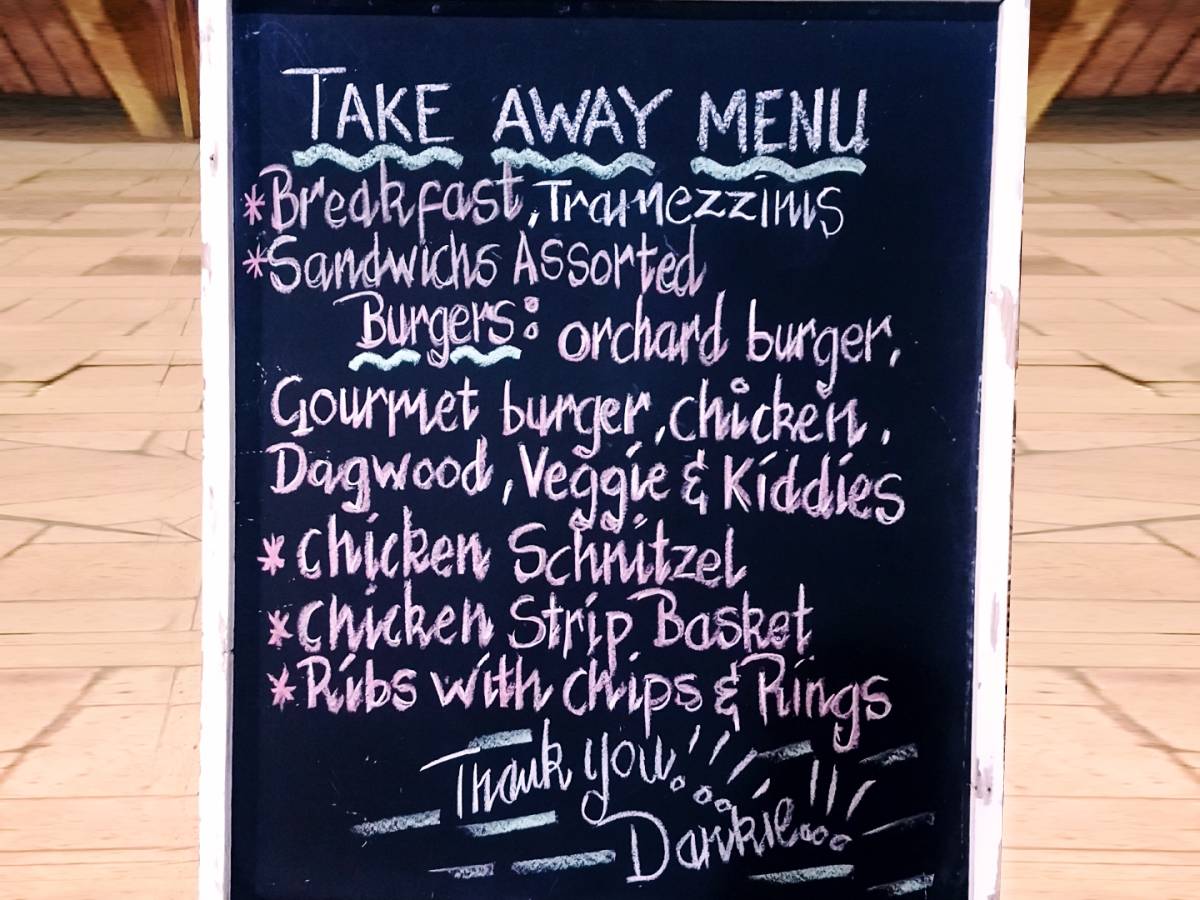 TAKE AWAY MENU
*Breakfast, Tramezzinis
*Sandwichs Assorted
Burgers: orchard burger,
Gourmet burger, chicken,
Dagwood, Veggie & Kiddies
*chicken Schnitzel
*chicken Strip Basket
*Ribs with chips & Rings
Thank you!!!...
Dankie...!!!